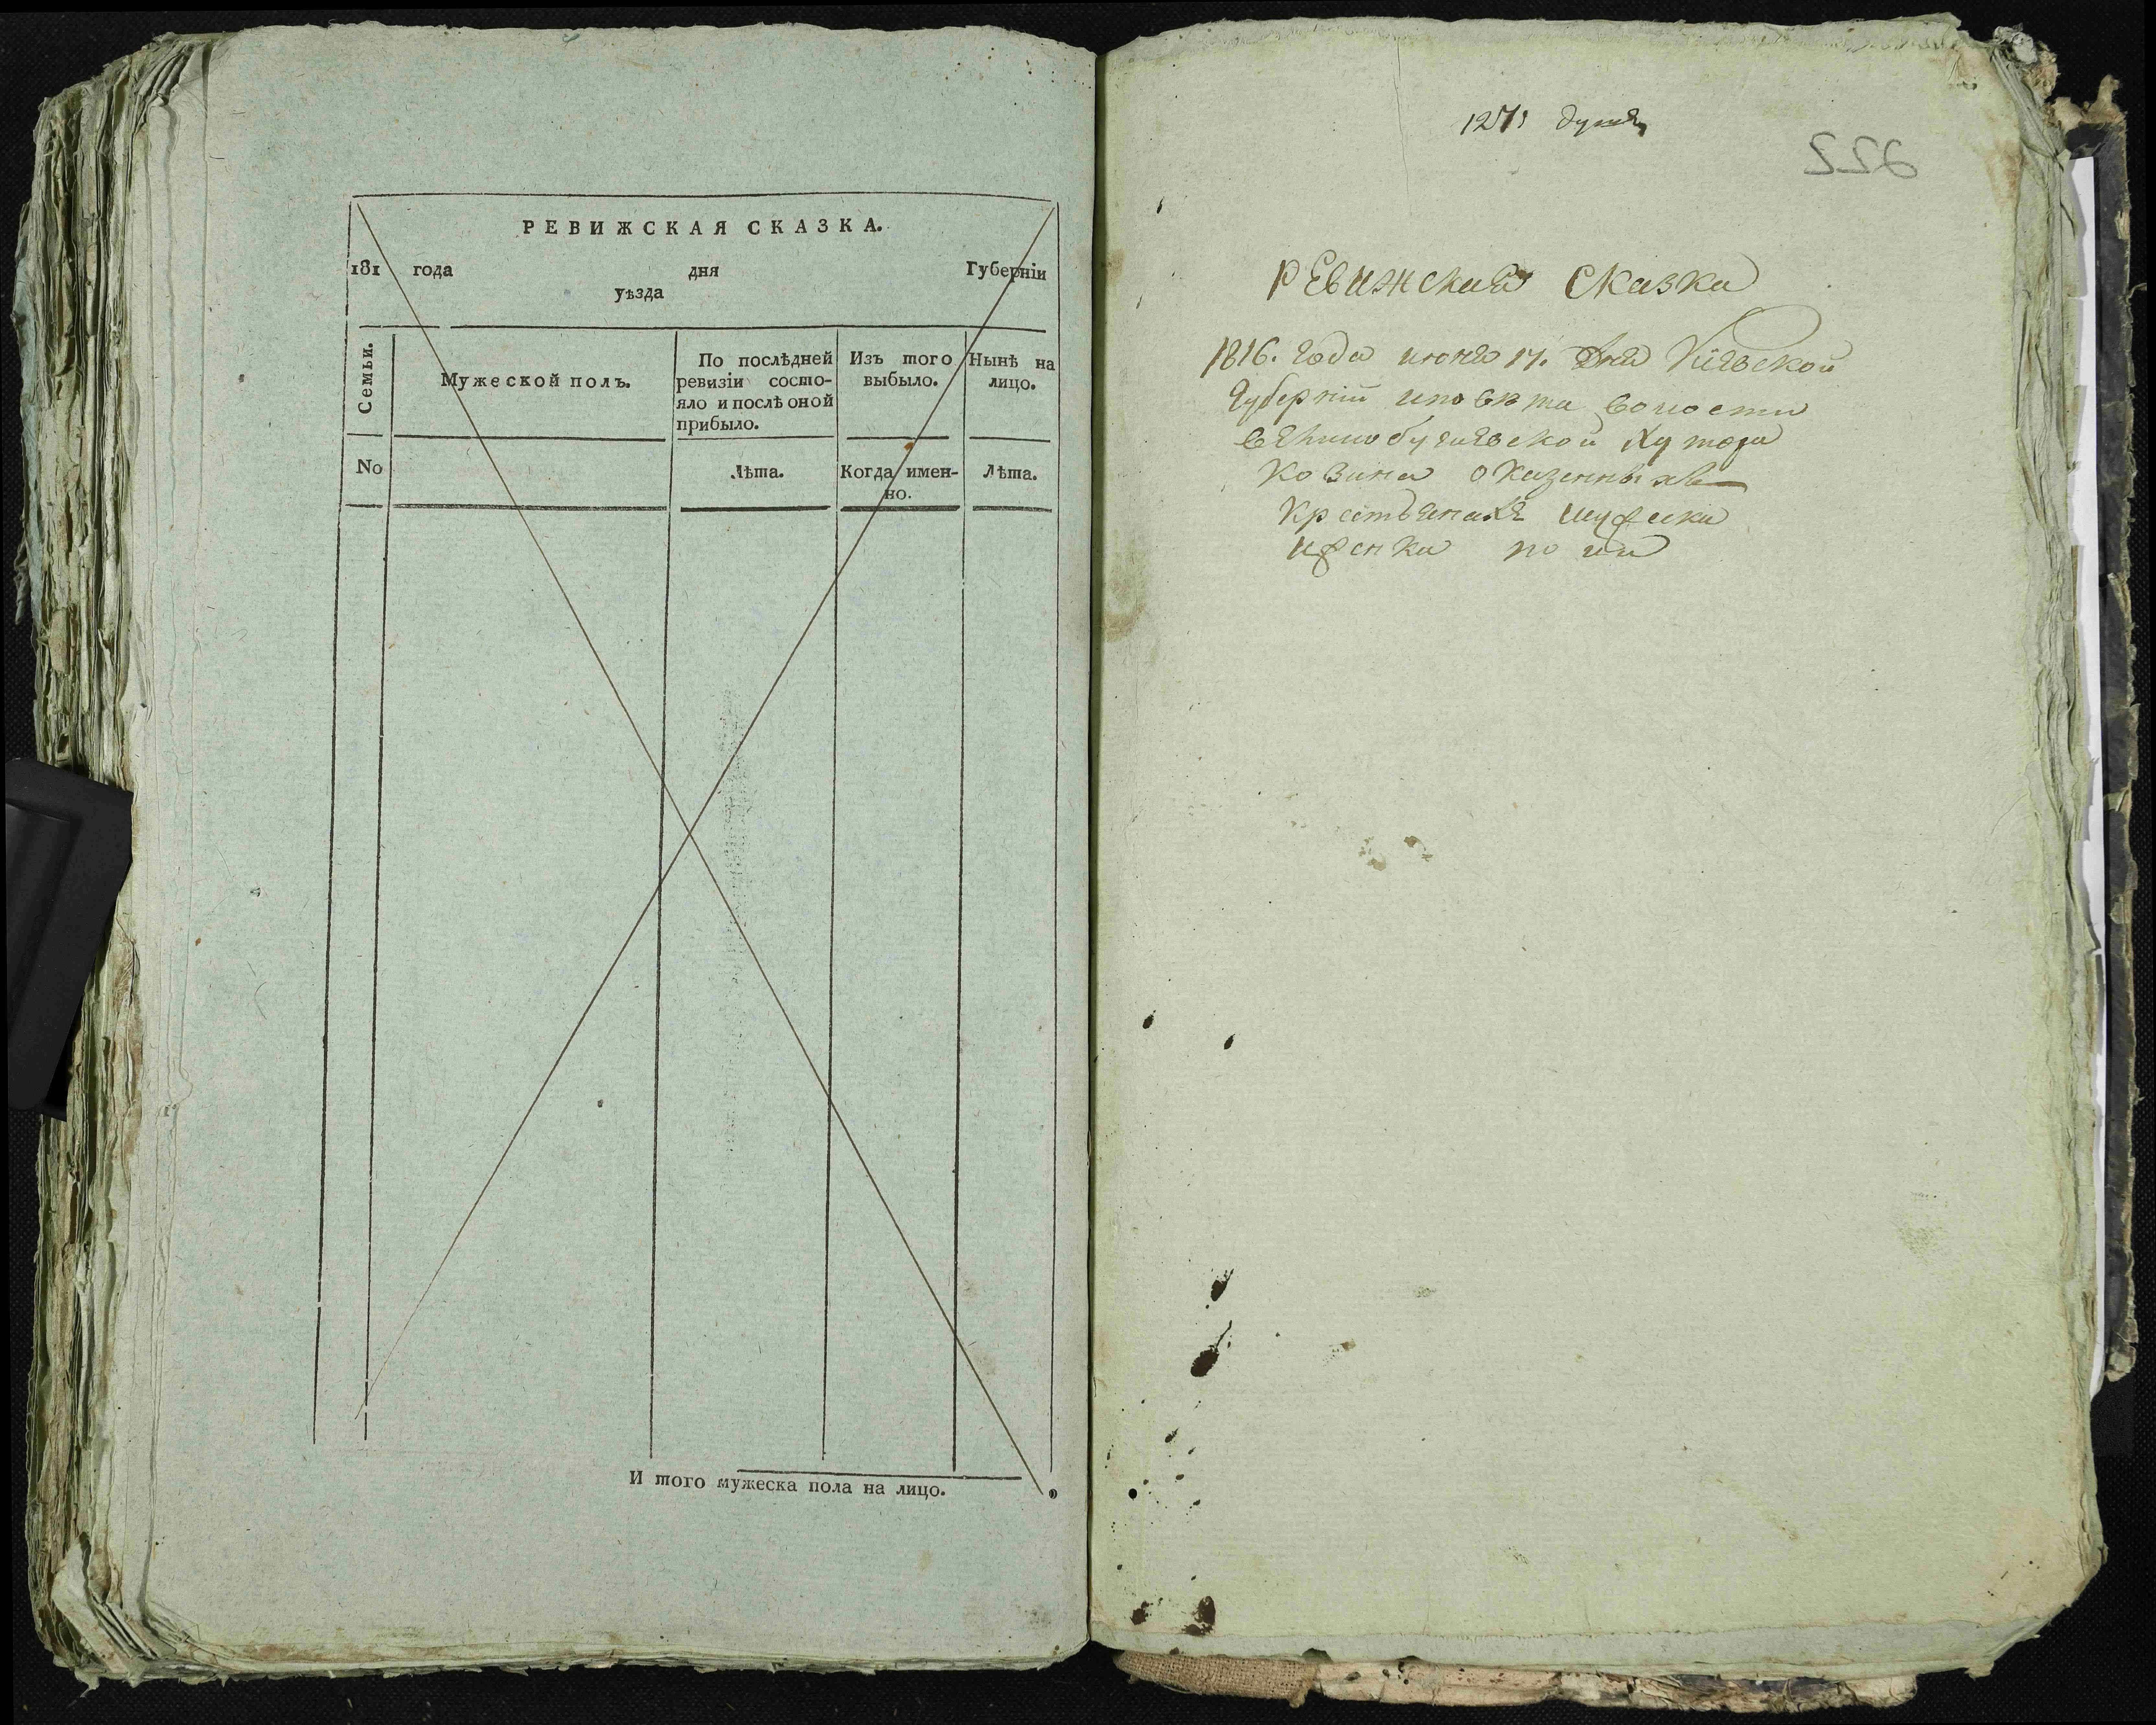 РЕВИЖСКАЯ СКАЗКА.
181 года дня Губерніи
уѣзда
Семьи.
Мужеской полъ.
По послѣдней
ревизіи состо-
яло и послѣ оной
прибыло.
Изъ того
выбыло.
Нынѣ на
лицо.
No
Лѣта.
Когда имен-
но.
Лѣта.
И того мужеска пола на лицо.
душъ
226
Ревижская Сказка
1816. года июня 17. дня Кіевской
Губерніи и повѣта волости
хутора
Козина о казенныхъ
крестьянахъ